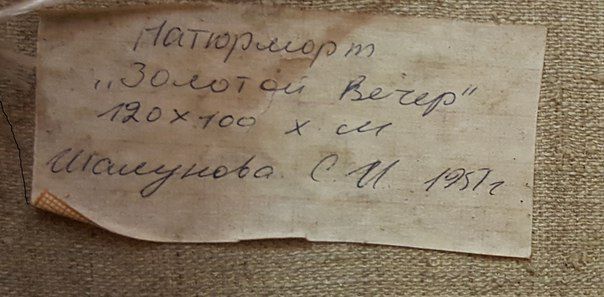 Натюрморт
„Золотой Вечер"
120х100 х м
Шалунова С И 1957г